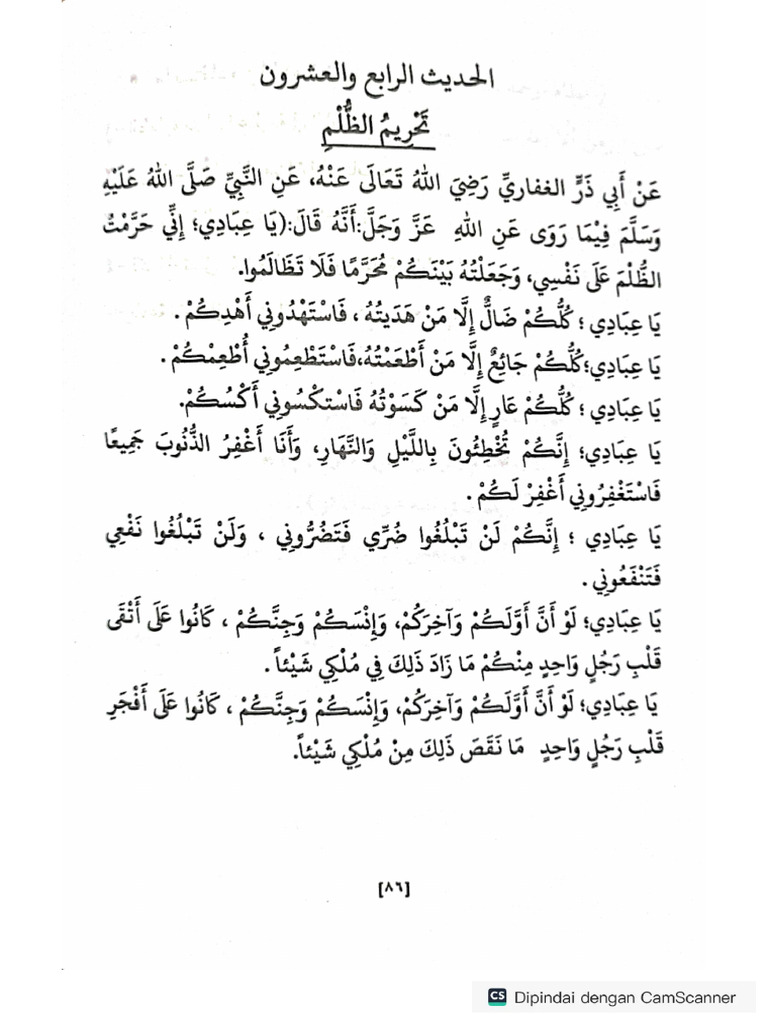 الحديث الرابع والعشرون
تَحْرِيمُ الظُّلْمِ
عَنْ أَبِي ذَرٍّ الغفاريِّ رَضِيَ اللهُ تَعَالَى عَنْهُ، عَنِ النَّبِيِّ صَلَّى اللهُ عَلَيْهِ
وَسَلَّمَ فِيمَا رَوَى عَنِ اللهِ عَزَّ وَجَلَّ:أَنَّهُ قَالَ:(يَا عِبَادِي؛ إِنِّي حَرَّمْتُ
الظُّلْمَ عَلَى نَفْسِي، وَجَعَلْتُهُ بَيْنَكُمْ مُحَرَّمًا فَلَا تَظَالَمُوا.
يَا عِبَادِي ؛ كُلُّكُمْ ضَالٌّ إِلَّا مَنْ هَدَيتُهُ ، فَاسْتَهْدُونِي أَهْدِكُمْ .
يَا عِبَادِي؛كُلُّكُمْ جَائِعٌ إِلَّا مَنْ أَطْعَمْتُهُ،فَاسْتَطْعِمُونِي أُطْعِمْكُمْ .
يَا عِبَادِي ؛ كُلُّكُمْ عَارٍ إِلَّا مَنْ كَسَوْتُهُ فَاسْتكْسُونِي أَكْسُكُمْ.
يَا عِبَادِي؛ إِنَّكُمْ تُخْطِئُونَ بِاللَّيْلِ وَالنَّهَارِ، وَأَنَا أَغْفِرُ الذُّنُوبَ جَمِيعًا
فَاسْتَغْفِرُونِي أَغْفِرْ لَكُمْ .
يَا عِبَادِي ؛ إِنَّكُمْ لَنْ تَبْلُغُوا ضُرِّي فَتَضُرُّونِي ، وَلَنْ تَبْلُغُوا نَفْعِي
فَتَنْفَعُونِي .
يَا عِبَادِي؛ لَوْ أَنَّ أَوَّلَكُمْ وَآخِرَكُمْ، وَإِنْسَكُمْ وَجِنَّكُمْ ، كَانُوا عَلَى أَتْقَى
قَلْبِ رَجُلٍ وَاحِدٍ مِنْكُمْ مَا زَادَ ذَلِكَ فِي مُلْكِي شَيْئاً .
يَا عِبَادِي؛ لَوْ أَنَّ أَوَّلَكُمْ وَآخِرَكُمْ، وَإِنْسَكُمْ وَجِنَّكُمْ ، كَانُوا عَلَى أَفْجَرِ
قَلْبِ رَجُلٍ وَاحِدٍ مَا نَقَصَ ذَلِكَ مِنْ مُلْكِي شَيْئاً.
[٨٦]
CS Dipindai dengan CamScanner